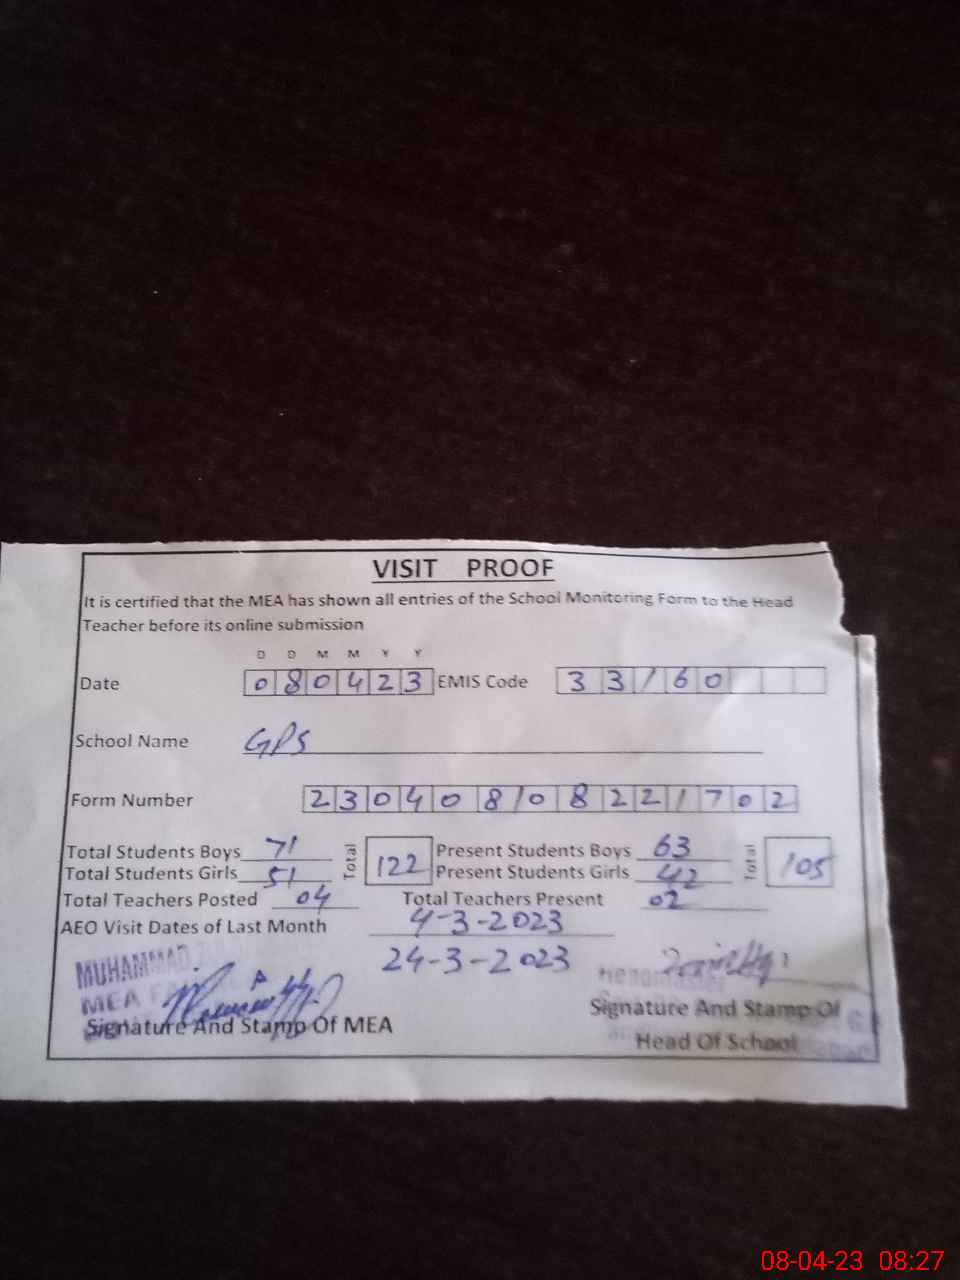 VISIT PROOF
It is certified that the MEA has shown all entries of the School Monitoring Form to the Head
Teacher before its online submission
D D M M Y Y
Date 080423 EMIS Code 33160
School Name GPS
Form Number 230408108221702
Total Students Boys 71 Total 122 Present Students Boys 63 Total 105
Total Students Girls 51 Present Students Girls 42
Total Teachers Posted 04 Total Teachers Present 02
AEO Visit Dates of Last Month 4-3-2023
24-3-2023
MUHAMMAD
MEA
Headmaster
Signature And Stamp Of MEA
Signature And Stamp Of
Head Of School
08-04-23 08:27